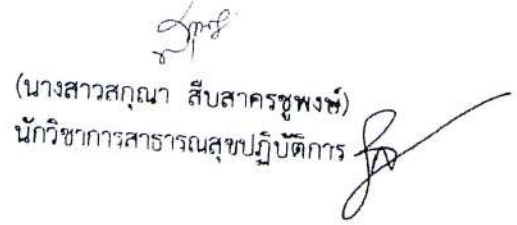 (นางสาวสกุณา สืบสาครชูพงษ์)
นักวิชาการสาธารณสุขปฏิบัติการ